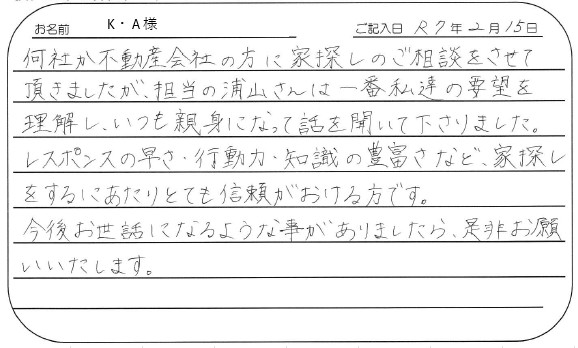 お名前 K・A様 ご記入日 R7年2月15日
何社か不動産会社の方に家探しのご相談をさせて
頂きましたが、担当の浦山さんは一番私達の要望を
理解し、いつも親身になって話を聞いて下さりました。
レスポンスの早さ・行動力・知識の豊富さなど、家探し
をするにあたりとても信頼がおける方です。
今後お世話になるような事がありましたら、是非お願
いいたします。